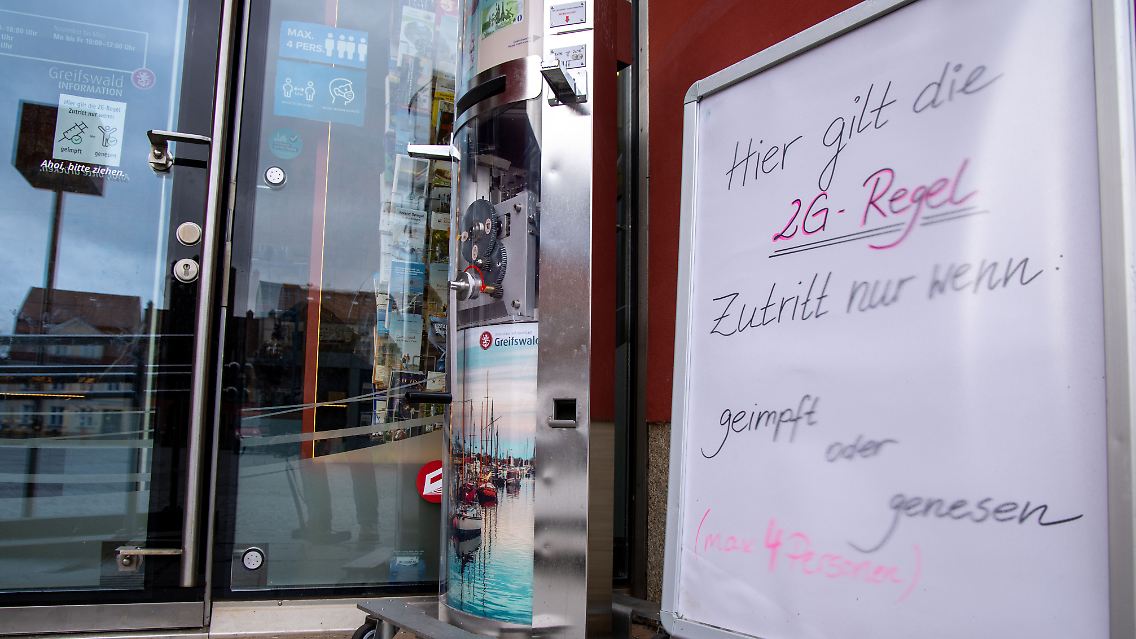 Uhr
Mo bis Fr 10:00-17:00 Uhr
Greifswald
INFORMATION
Hier gilt die 2G-Regel
Zutritt nur wenn:
geimpft
genesen
Ahoi, bitte ziehen.
MAX.
4 PERS.
Greifswald
Hier gilt die
2G-Regel
Zutritt nur wenn:
geimpft
oder
genesen
(max 4 Personen)